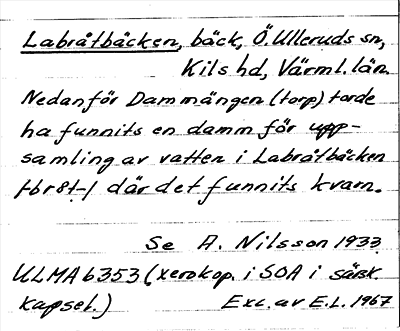 Labråtbäcken, bäck, Ö. Ulleruds sn,
Kils hd, Värml. län.
Nedanför Dammängen (torp) torde
ha funnits en damm för upp-
samling av vatten i Labråtbäcken
där det funnits kvarn.
Se A. Nilsson 1933
ULMA 6353 (xerokop. i SOA i särsk.
kapsel.) Exc. av E.L. 1967